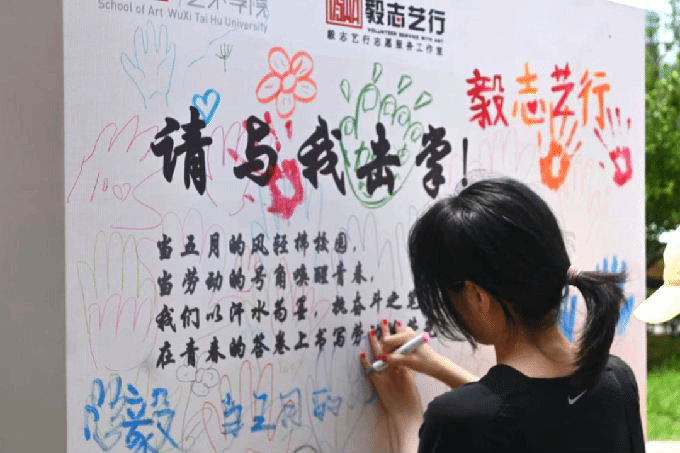 术学院
School of Art WuXi Tai Hu University
毅志艺行
VOLUNTEER SERVICE WITH ART
毅志艺行志愿服务工作室
毅志艺行
请与我击掌!
当五月的风轻拂校园,
当劳动的号角唤醒青春,
我们以汗水为墨,执奋斗之笔
在青春的答卷上书写劳
毅
当五月的